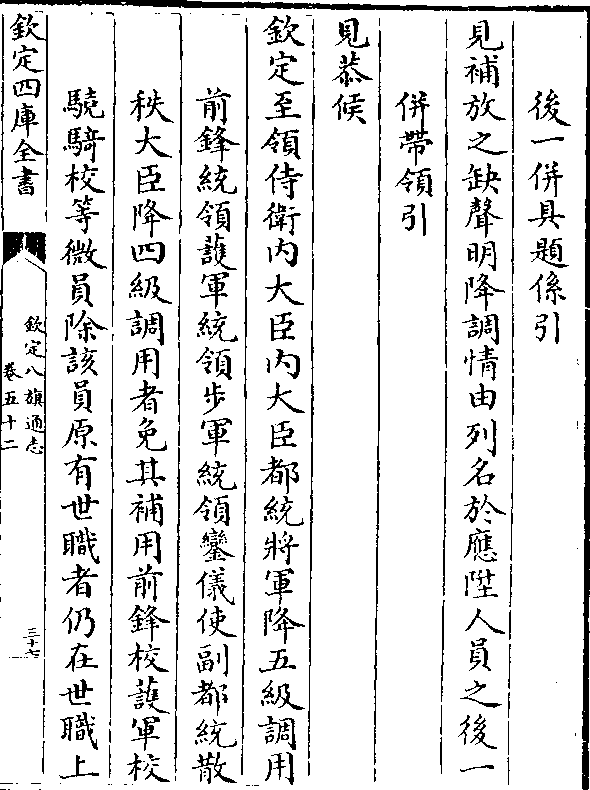 後一併具題係引
見補放之缺聲明降調情由列名於應陞人員之後一
併帶領引
見恭候
欽定至領侍衛内大臣内大臣都統將軍降五級調用
前鋒統領護軍統領步軍統領鑾儀使副都統散
秩大臣降四級調用者免其補用前鋒校護軍校
驍騎校等微員除該員原有世職者仍在世職上
欽定四庫全書
欽定八旗通志
卷五十二
三十六